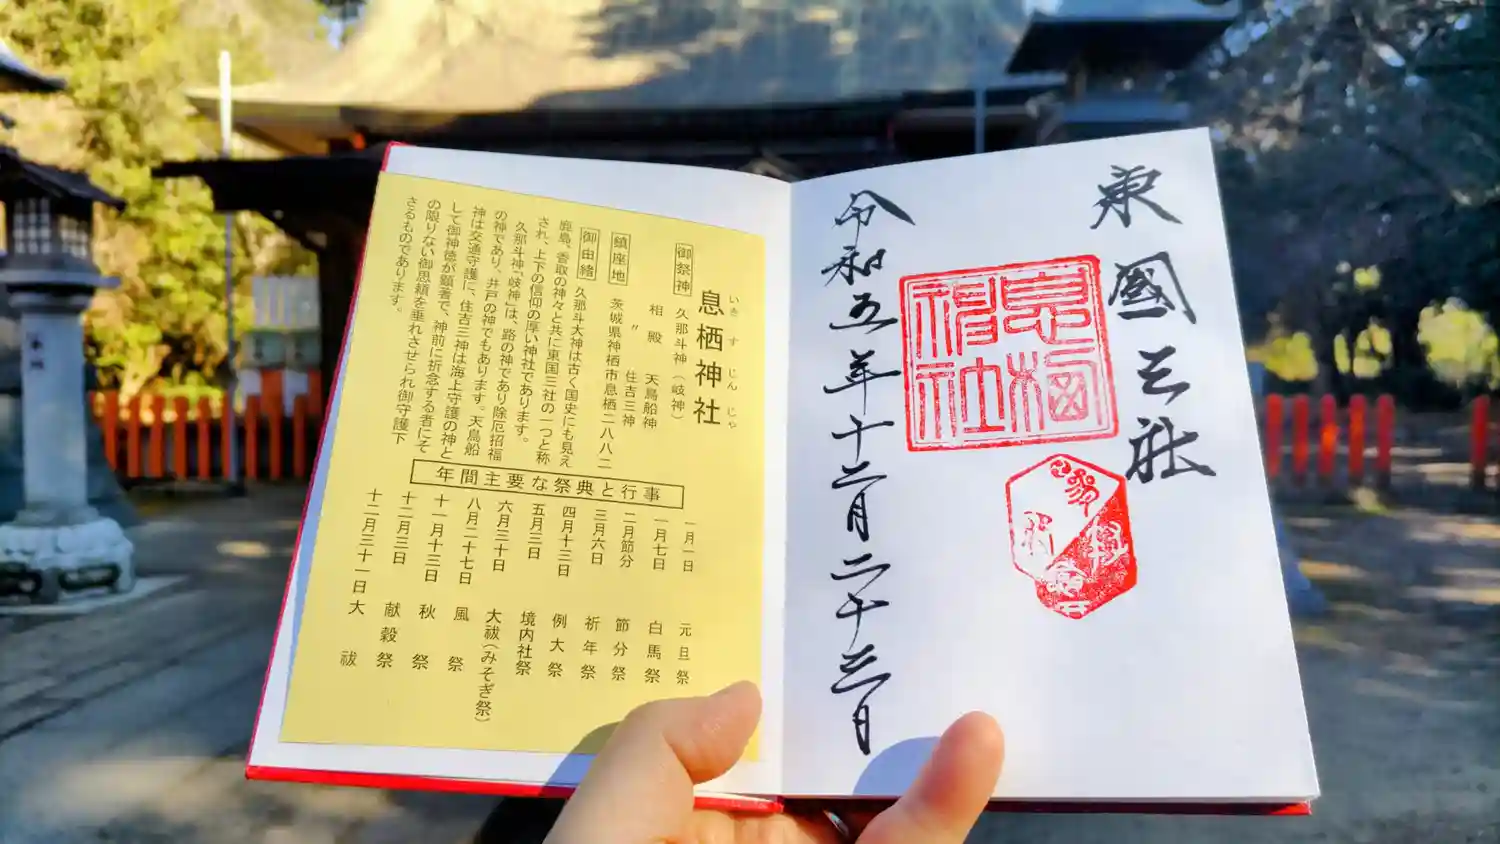 東國三社
息栖神社
令和五年十二月二十三日
いきすじんじゃ
息栖神社
御祭神 久那斗神(岐神)
相殿 天鳥船神
〃 住吉三神
鎮座地 茨城県神栖市息栖二八八二
御由緒 久那斗大神は古く国史にも見え
鹿島、香取の神々と共に東国三社の一つと称
され、上下の信仰の厚い神社であります。
久那斗神「岐神」は、路の神であり除厄招福
の神であり、井戸の神でもあります。天鳥船
神は交通守護に、住吉三神は海上守護の神と
して御神徳が顕著で、神前に祈念する者にそ
の限りない御恩頼を垂れさせられ御守護下
さるものであります。
年間主要な祭典と行事
一月一日 元旦祭
一月七日 白馬祭
二月節分 節分祭
三月六日 祈年祭
四月十三日 例大祭
五月三日 境内社祭
六月三十日 大祓(みそぎ祭)
八月二十七日 風祭
十一月十三日 秋祭
十二月三日 献穀祭
十二月三十一日 大祓